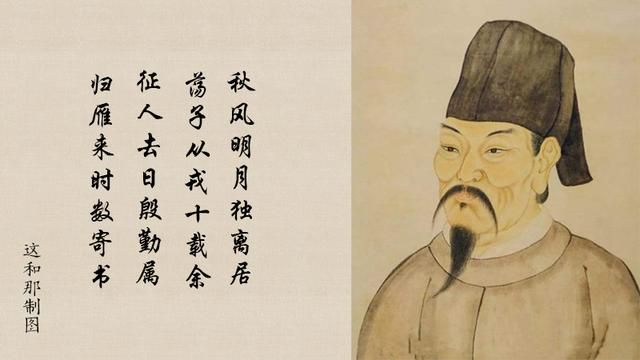 秋风明月独离居
荡子从戎十载余
征人去日殷勤属
归雁来时数寄书
这和那制图